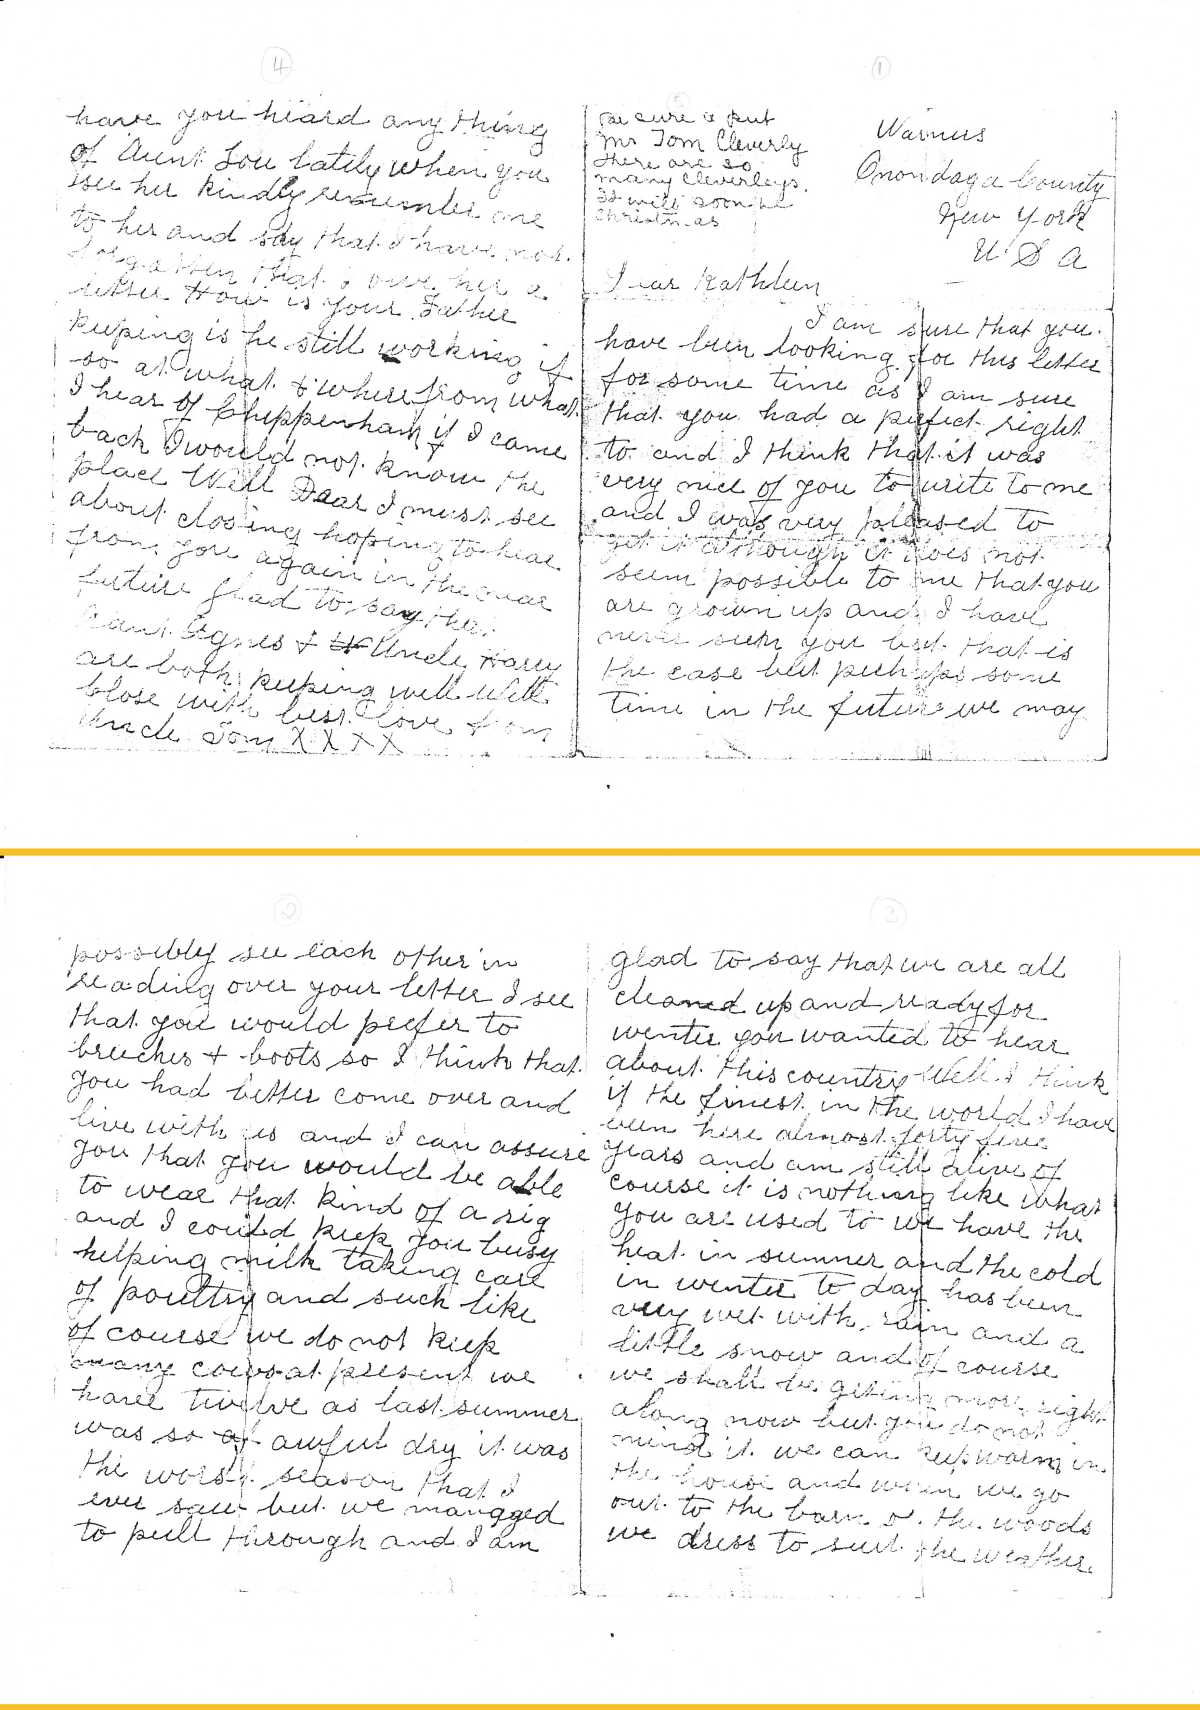 ①
Warners
Onondaga County
New York
U S A
be sure & put
Mr Tom Cleverly
there are so
many Cleverleys.
It will soon be
Christmas
Dear Kathleen
I am sure that you
have been looking for this letter
for some time as I am sure
that you had a pefect right
to and I think that it was
very nice of you to write to me
and I was very pleased to
get it although it does not
seem possible to me that you
are grown up and I have
never seen you but that is
the case but perhaps some
time in the future we may
②
possibly see each other in
reading over your letter I see
that you would prefer to
breeches + boots so I think that
you had better come over and
live with us and I can assure
you that you would be able
to wear that kind of a rig
and I could keep you busy
helping milk taking care
of poultry and such like
of course we do not keep
many cows at present we
have twelve as last summer
was so awful dry it was
the worst season that I
ever saw but we manqged
to pull through and I am
③
glad to say that we are all
cleaned up and ready for
winter you wanted to hear
about this country Well I think
it the finest in the world I have
been here almost forty five
years and am still alive of
course it is nothing like what
you are used to we have the
heat in summer and the cold
in winter to day has been
very wet with rain and a
little snow and of course
we shall be geting more right
along now but you do not
mind it we can keep warm in
the house and when we go
out to the barn or the woods
we dress to suit the weather
④
have you heard any thing
of Aunt Lou lately when you
see her kindly remember me
to her and say that I have not
forgotten that I owe her a
letter How is your Father
keeping is he still working if
so at what & where from what
I hear of Chippenham if I came
back I would not know the
place Well Dear I must see
about closing hoping to hear
from you again in the near
future glad to say that
Aunt Agnes & Uncle Harry
are both keeping well Will
close with best love from
Uncle Tom X X X X